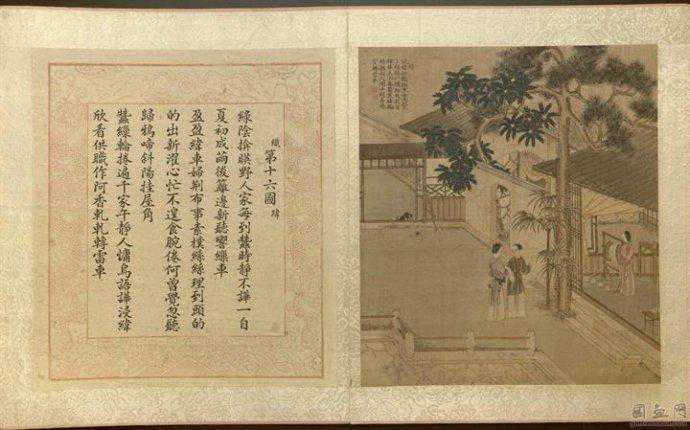 織 第十六圖 緯
綠陰揜暎野人家每到蠶時靜不譁一自
夏初成繭後籬邊新聽響繅車
盈盈緯車婦荆布事素樸絲絲理到頭的
的出新濯心忙不遑食腕倦何曾覺忽聽
歸鴉啼斜陽挂屋角
蠶繅輪捲遍千家午靜人慵鳥語譁浸緯
欣看供職作阿香軋軋轉雷車